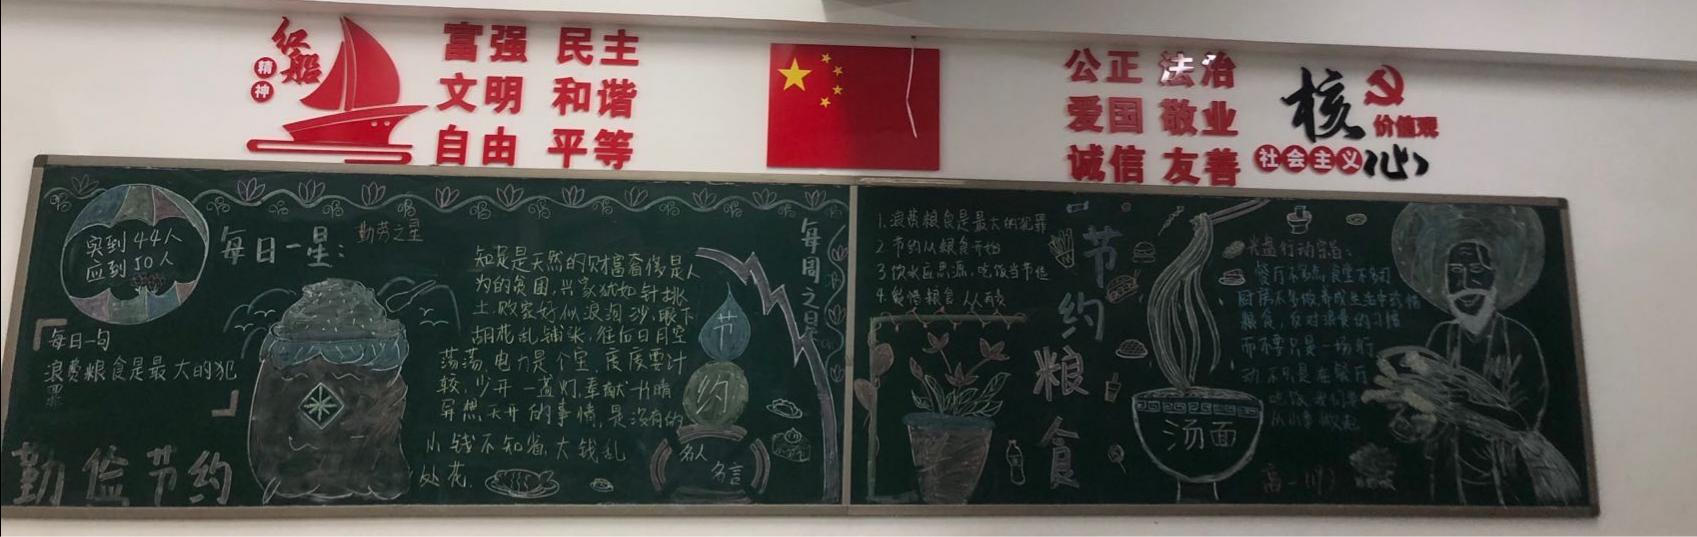 红船
精神
富强 民主
文明 和谐
自由 平等
公正 法治
爱国 敬业
诚信 友善
核心
价值观
社会主义
实到44人
应到50人
每日一星：
勤劳之星
每日一句
浪费粮食是最大的犯
罪
勤俭节约
知足是天然的财富奢侈是人
为的贫困，兴家犹如针挑
土，败家好似浪淘沙，眼下
胡花乱铺张，往后日月空
荡荡，电力是个宝，度度要计
较，少开一盏灯，奉献一片晴
异想天开的事情，是没有的
小钱不知省，大钱乱
处花.
节
约
名人
名言
每周之星
1.浪费粮食是最大的犯罪
2 节约从粮食开始
3 饮水应思源，吃饭当节俭
4.爱惜粮食 人人有责
节约粮食
汤面
光盘行动宗旨：
餐厅不多点 食堂不多打
厨房不多做 养成生活中珍惜
粮食，反对浪费的习惯
而不要只是一场行
动 不只是在餐厅
吃饭
从小事做起
高一